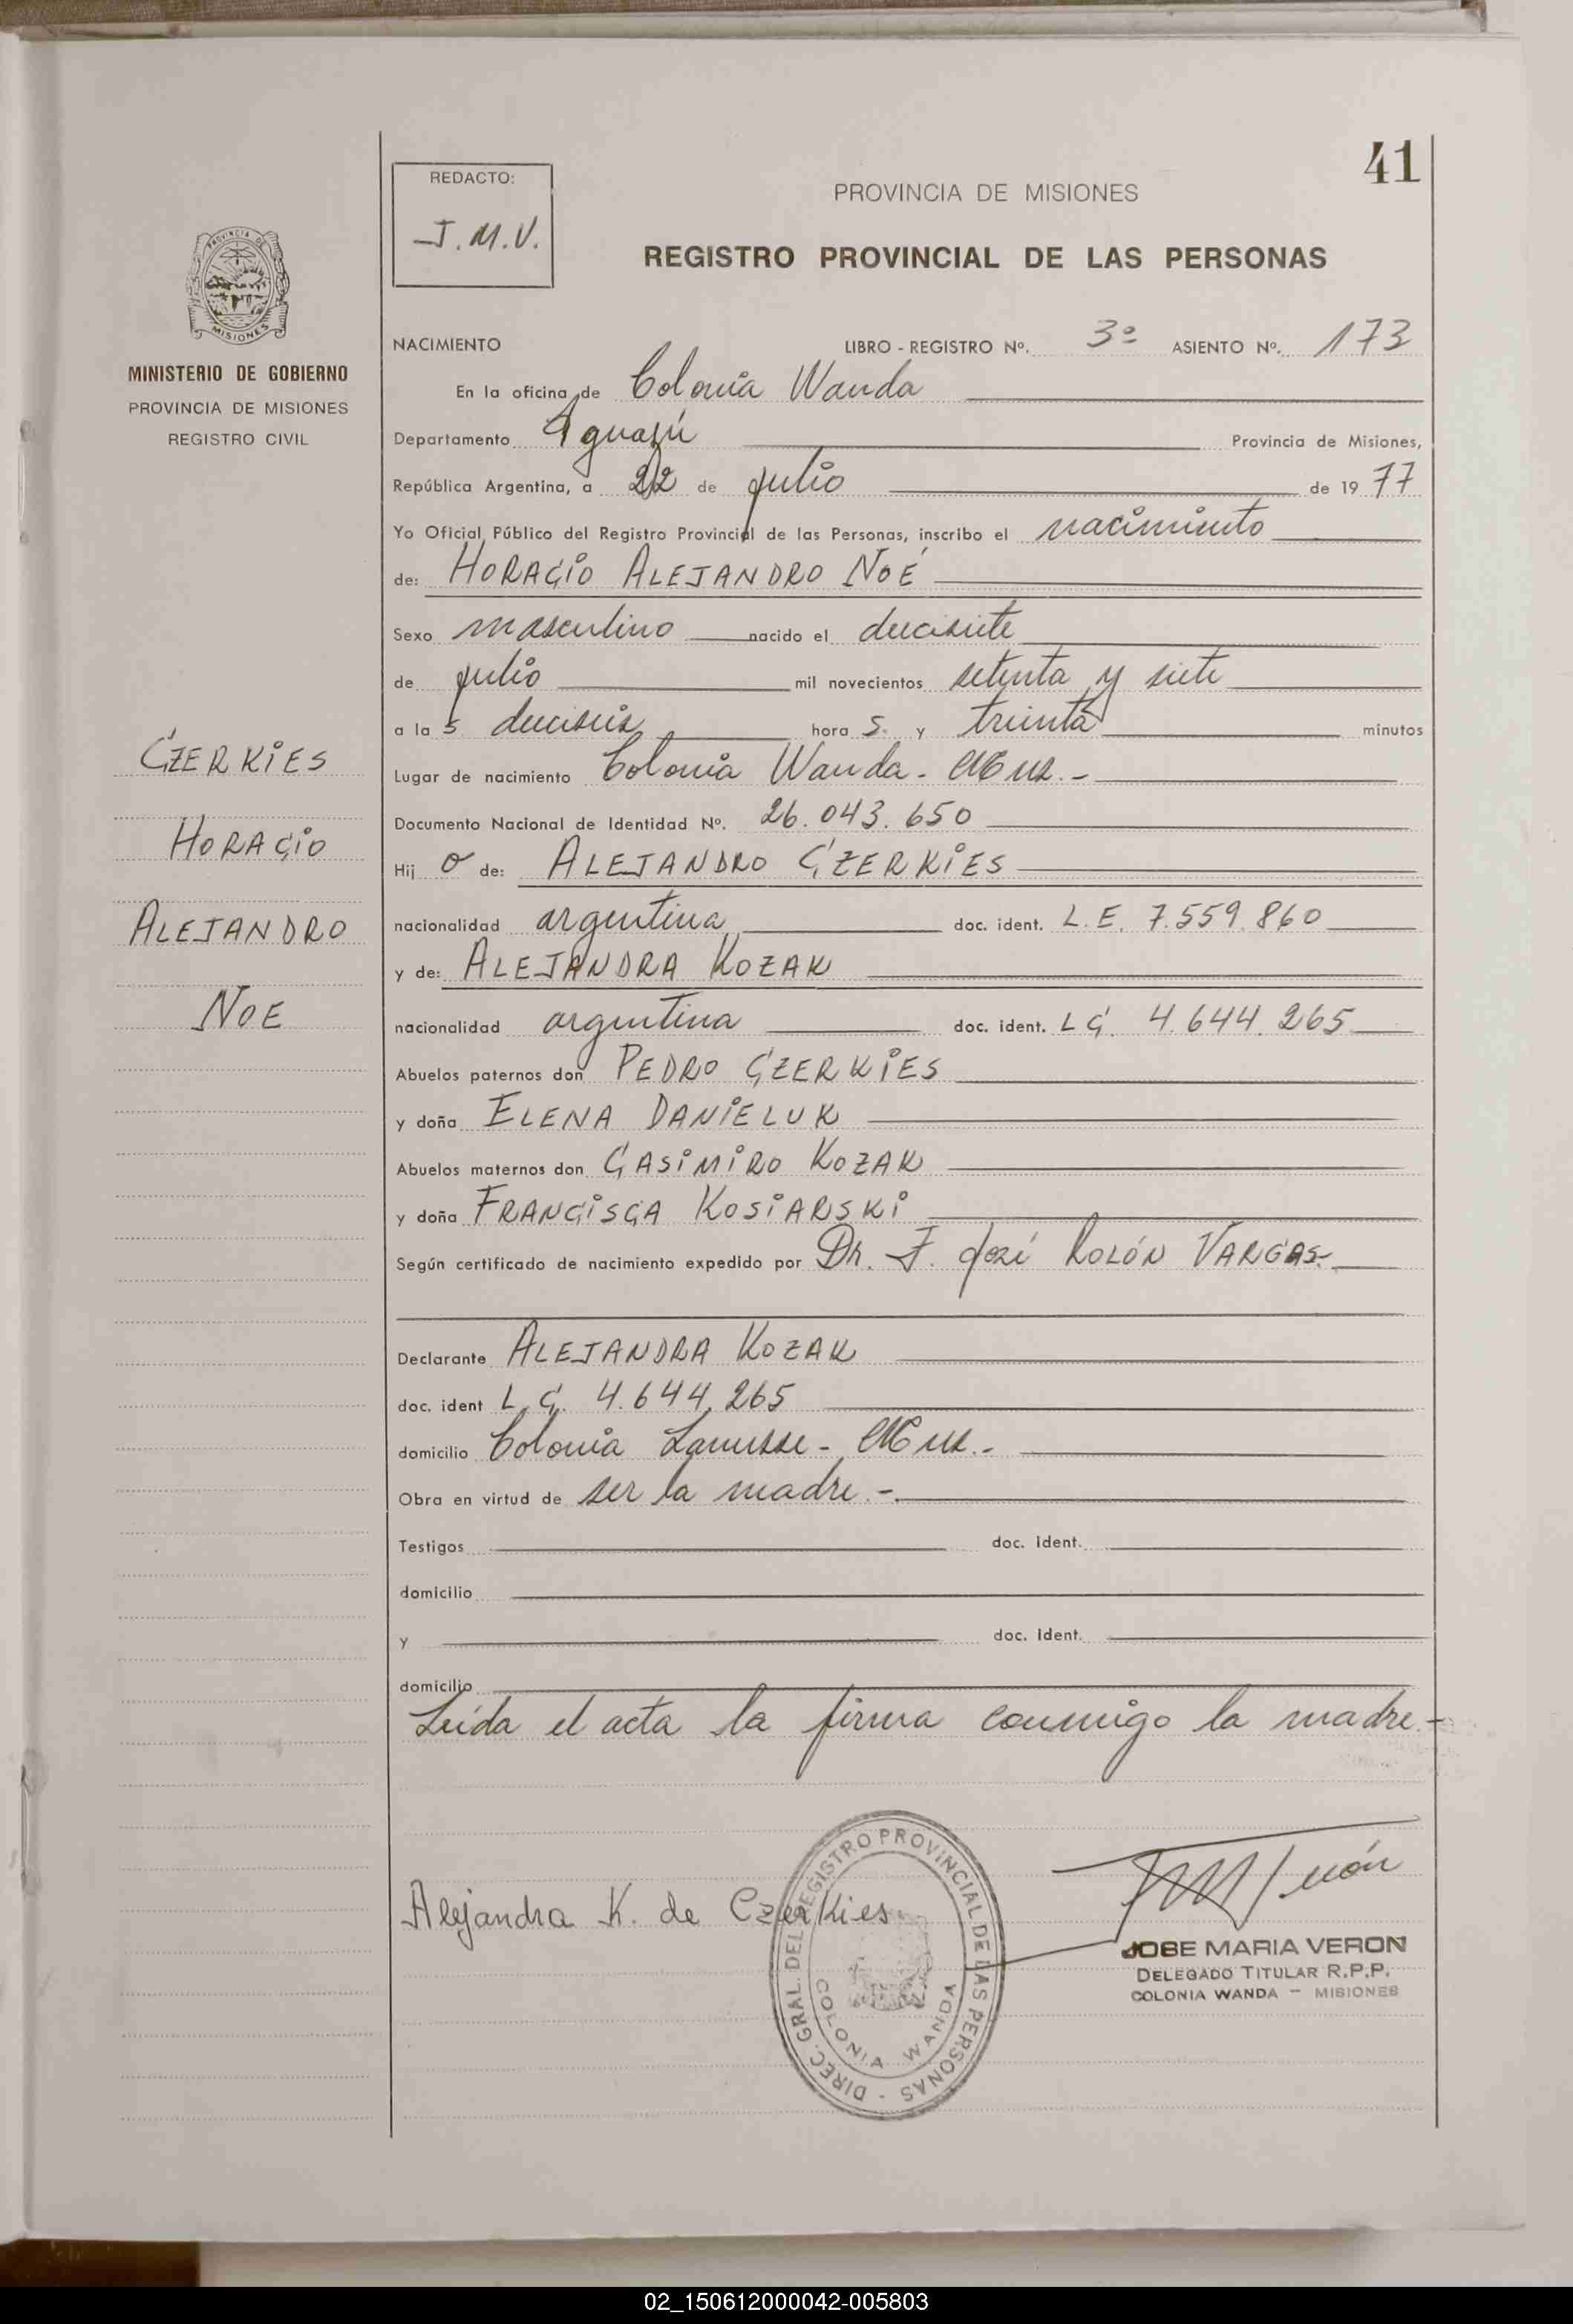 41
REDACTO:
J.M.V.
PROVINCIA DE MISIONES
REGISTRO PROVINCIAL DE LAS PERSONAS
PROVINCIA DE
MISIONES
MINISTERIO DE GOBIERNO
PROVINCIA DE MISIONES
REGISTRO CIVIL
CZERKIES
HORACIO
ALEJANDRO
NOE
NACIMIENTO LIBRO - REGISTRO Nº. 3º ASIENTO Nº. 173
En la oficina de Colonia Wanda
Departamento Iguazú Provincia de Misiones,
República Argentina, a 22 de julio de 19 77
Yo Oficial Público del Registro Provincial de las Personas, inscribo el nacimiento
de: HORACIO ALEJANDRO NOÉ
Sexo masculino nacido el diecisiete
de julio mil novecientos setenta y siete
a la s dieciseis hora s. y treinta minutos
Lugar de nacimiento Colonia Wanda - Mnes.-
Documento Nacional de Identidad Nº. 26.043.650
Hij o de: ALEJANDRO CZERKIES
nacionalidad argentina doc. ident. L.E. 7.559.860
y de: ALEJANDRA KOZAK
nacionalidad argentina doc. ident. L C. 4.644.265
Abuelos paternos don PEDRO CZERKIES
y doña ELENA DANIELUK
Abuelos maternos don CASIMIRO KOZAK
y doña FRANCISCA KOSIARSKI
Según certificado de nacimiento expedido por Dr. F. José ROLÓN VARGAS.-
Declarante ALEJANDRA KOZAK
doc. ident L.C. 4.644.265
domicilio Colonia Lanusse - Mnes.-
Obra en virtud de ser la madre.-
Testigos doc. ident.
domicilio
y doc. ident.
domicilio
Leída el acta la firma conmigo la madre.-
Alejandra K. de Czerkies
DIREC. GRAL. DEL REGISTRO PROVINCIAL DE LAS PERSONAS -
COLONIA WANDA
JOSE MARIA VERON
DELEGADO TITULAR R.P.P.
COLONIA WANDA - MISIONES
02_150612000042-005803